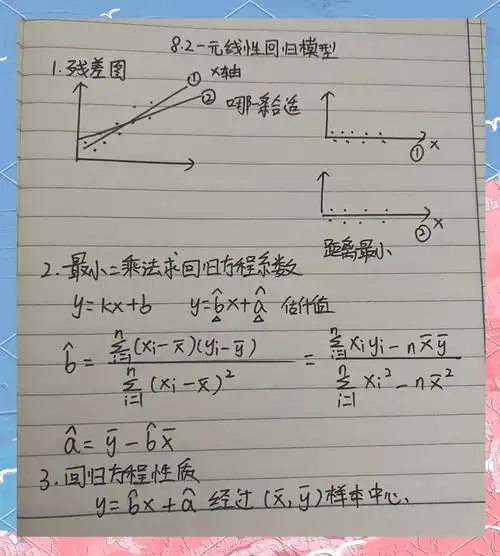 8.2一元线性回归模型
1.残差图
① x轴
② 哪一条合适
x
①
x
②
距离最小
2.最小二乘法求回归方程系数
y=kx+b y=b̂x+â 估计值
b̂ = \frac{\sum_{i=1}^{n}(x_i-x̄)(y_i-ȳ)}{\sum_{i=1}^{n}(x_i-x̄)^2} = \frac{\sum_{i=1}^{n}x_iy_i-nx̄ȳ}{\sum_{i=1}^{n}x_i^2-nx̄^2}
â=ȳ-b̂x̄
3.回归方程性质
y=b̂x+â 经过(x̄,ȳ)样本中心.